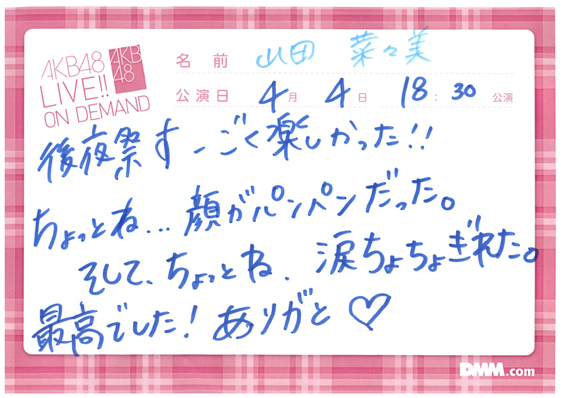 AKB48
LIVE!!
ON DEMAND
AKB
48
名前 山田 菜々美
公演日 4月 4日 18:30 公演
後夜祭すーごく楽しかった!!
ちょっとね...顔がパンパンだった。
そして、ちょっとね、涙ちょちょぎれた。
最高でした!ありがと♡
DMM.com